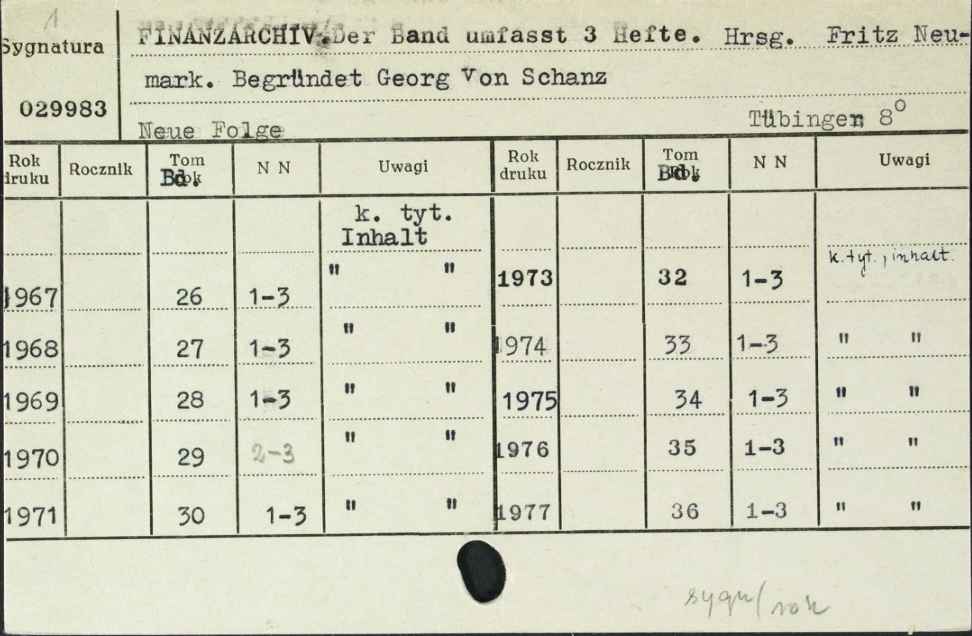 1
Sygnatura
029983
FINANZARCHIV. Der Band umfasst 3 Hefte. Hrsg. Fritz Neu-
mark. Begründet Georg Von Schanz
Tübingen 8°
Neue Folge
Rok druku Rocznik Tom Rok Bd. N N Uwagi Rok druku Rocznik Tom Rok Bd. N N Uwagi
k. tyt.
Inhalt
1967 26 1-3 " " 1973 32 1-3 k. tyt., inhalt.
1968 27 1-3 " " 1974 33 1-3 " "
1969 28 1-3 " " 1975 34 1-3 " "
1970 29 2-3 " " 1976 35 1-3 " "
1971 30 1-3 " " 1977 36 1-3 " "
sygn/rok